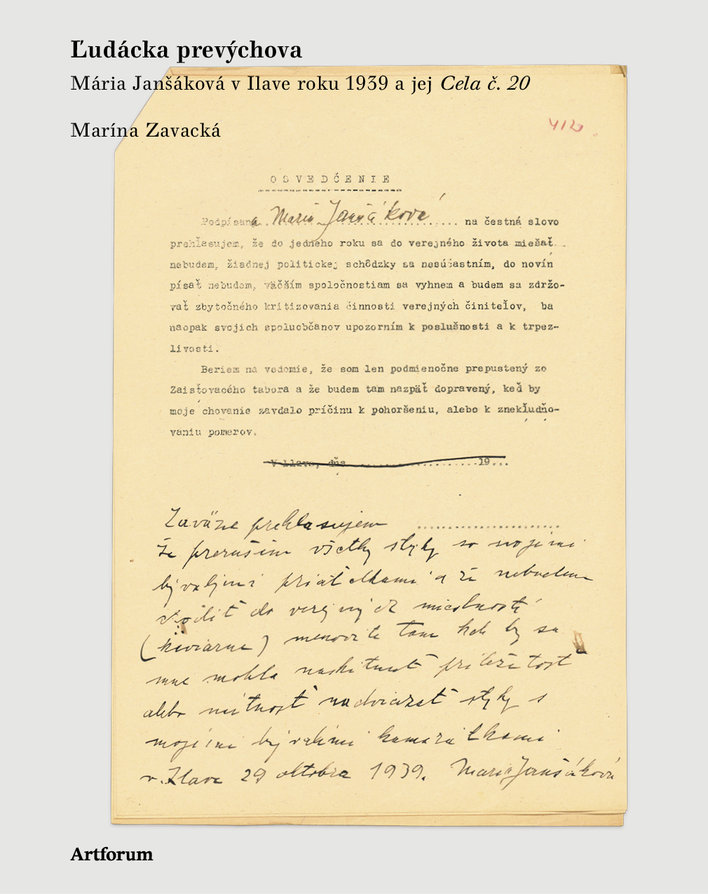 Ľudácka prevýchova
Mária Janšáková v Ilave roku 1939 a jej Cela č. 20
Marína Zavacká
4120
OSVEDČENIE
Podpísaná Maria Janšáková na čestná slovo
prehlasujem, že do jedného roku sa do verejného života miešať
nebudem, žiadnej politickej schôdzky sa nesúčastním, do novín
písať nebudem, väčším spoločnostiam sa vyhnem a budem sa zdržo-
vať zbytočného kritizovania činnosti verejných činiteľov, ba
naopak svojich spoluobčanov upozorním k poslušnosti a k trpez-
livosti.
Beriem na vedomie, že som len podmienočne prepustený zo
Zaisťovacieho tabora a že budem tam nazpäť dopravený, keď by
moje chovanie zavdalo príčinu k pohoršeniu, alebo k znekľudňo-
vaniu pomerov.
V Ilave, dňa 19
Zaväzne prehlasujem
že prerušim všetky styky so mojimi
bývalými priateľkami a že nebudem
chodiť do verejných miestností
(kaviarne) menovite tam kde by sa
mne mohla naskitnúť príležitosť
alebo nútnosť nadviazať styky s
mojimi bývalimi kamarátkami
v Ilave 29 oktobra 1939. Maria Janšáková
Artforum